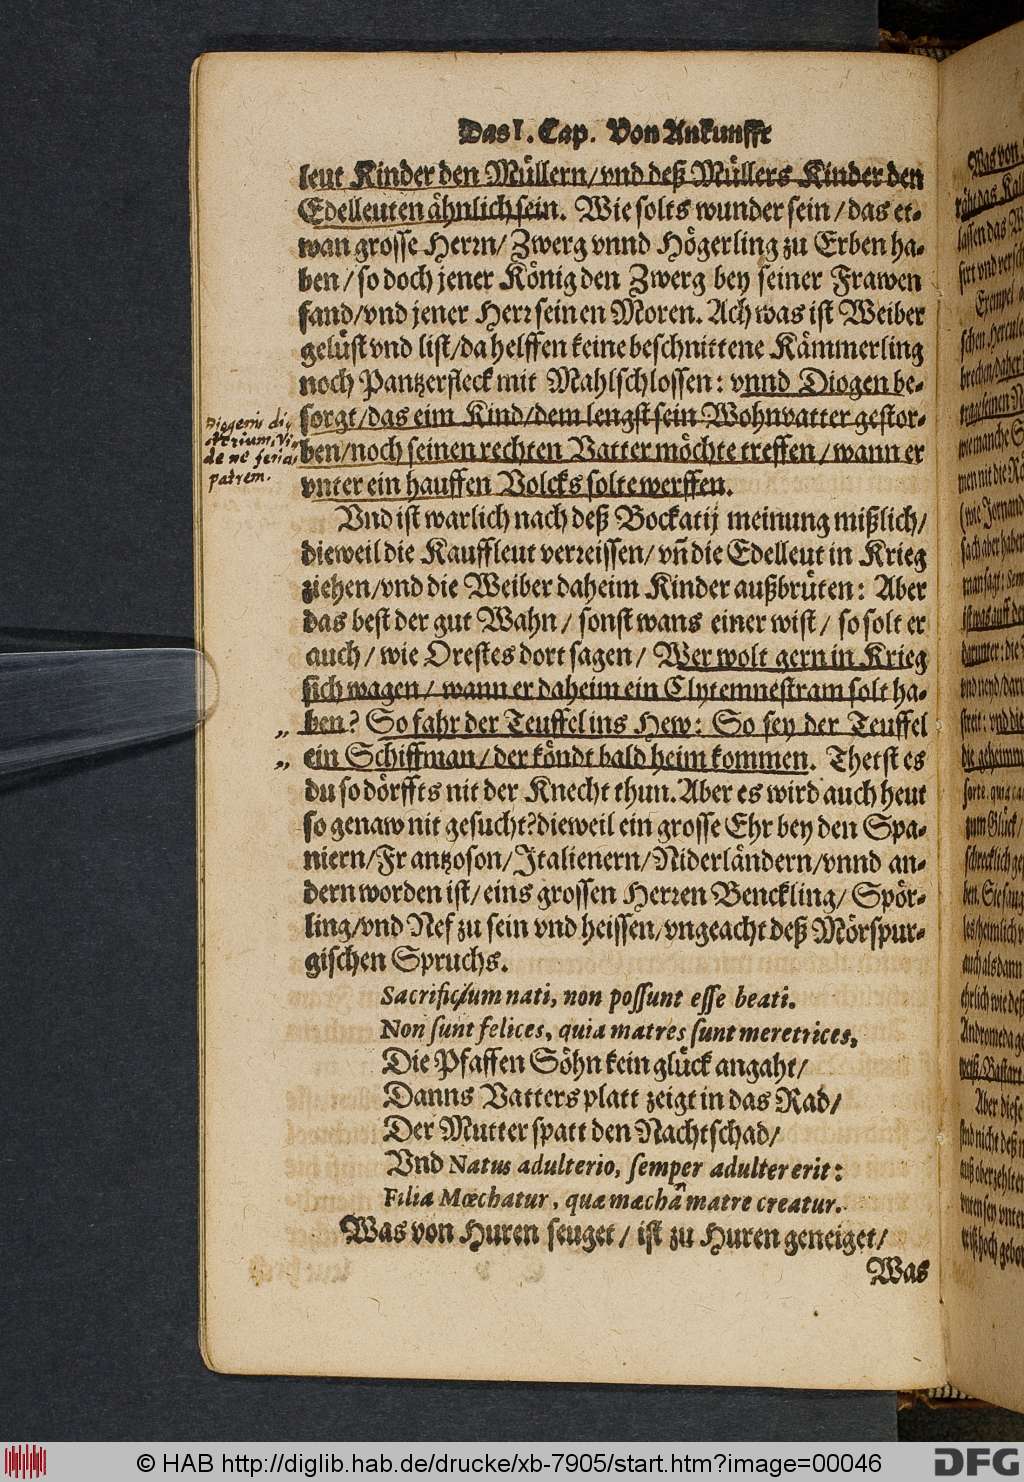 Das I. Cap. Von Ankunfft
leut Kinder den Müllern/vnd deß Müllers Kinder den
Edelleuten ähnlich sein. Wie solts wunder sein/das et-
wan grosse Herrn/Zwerg vnnd Högerling zu Erben ha-
ben/so doch jener König den Zwerg bey seiner Frawen
fand/vnd jener Herr seinen Moren. Ach was ist Weiber
gelüst vnd list/da helffen keine beschnittene Kämmerling
noch Pantzerfleck mit Mahlschlossen: vnnd Diogen be-
sorgt/das eim Kind/dem lengst sein Wohnvatter gestor-
ben/noch seinen rechten Vatter möchte treffen/wann er
vnter ein hauffen Volcks solte werffen.
Diogenis di-
cterium, Vi-
de ne ferias
patrem.
Vnd ist warlich nach deß Bockatij meinung mißlich/
dieweil die Kauffleut verreissen/vñ die Edelleut in Krieg
ziehen/vnd die Weiber daheim Kinder außbrüten: Aber
das best der gut Wahn/sonst wans einer wist/so solt er
auch/wie Orestes dort sagen/Wer wolt gern in Krieg
sich wagen/wann er daheim ein Clytemnestram solt ha-
„ ben? So fahr der Teuffel ins Hew: So sey der Teuffel
„ ein Schiffman/der köndt bald heim kommen. Thetst es
du so dörffts nit der Knecht thun. Aber es wird auch heut
so genaw nit gesucht?dieweil ein grosse Ehr bey den Spa-
niern/Frantzoson/Italienern/Niderländern/vnnd an-
dern worden ist/eins grossen Herren Benckling/Spör-
ling/vnd Nef zu sein vnd heissen/vngeacht deß Mörspur-
gischen Spruchs.
Sacrificium nati, non possunt esse beati.
Non sunt felices, quia matres sunt meretrices,
Die Pfaffen Söhn kein glück angaht/
Danns Vatters platt zeigt in das Rad/
Der Mutter spatt den Nachtschad/
Vnd Natus adulterio, semper adulter erit:
Filia Mœchatur, quæ mæchâ matre creatur.
Was von Huren seuget/ist zu Huren geneiget/
Was
© HAB http://diglib.hab.de/drucke/xb-7905/start.htm?image=00046
DFG